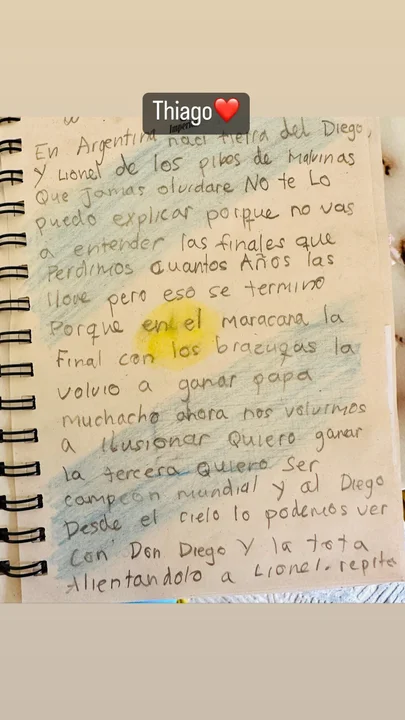 Thiago❤️
En Argentina naci tierra del Diego,
y Lionel de los pibes de Malvinas
Que jamas olvidare No te Lo
puedo explicar porque no vas
a entender las finales que
Perdimos cuantos Años las
llore pero eso se termino
Porque en el maracana la
Final con los brazugas la
volvio a ganar papa
muchacho ahora nos volvimos
a ilusionar Quiero ganar
la tercera Quiero Ser
campeon mundial y al Diego
Desde el cielo lo podemos ver
Con Don Diego Y la tota
Alientandolo a Lionel. repite